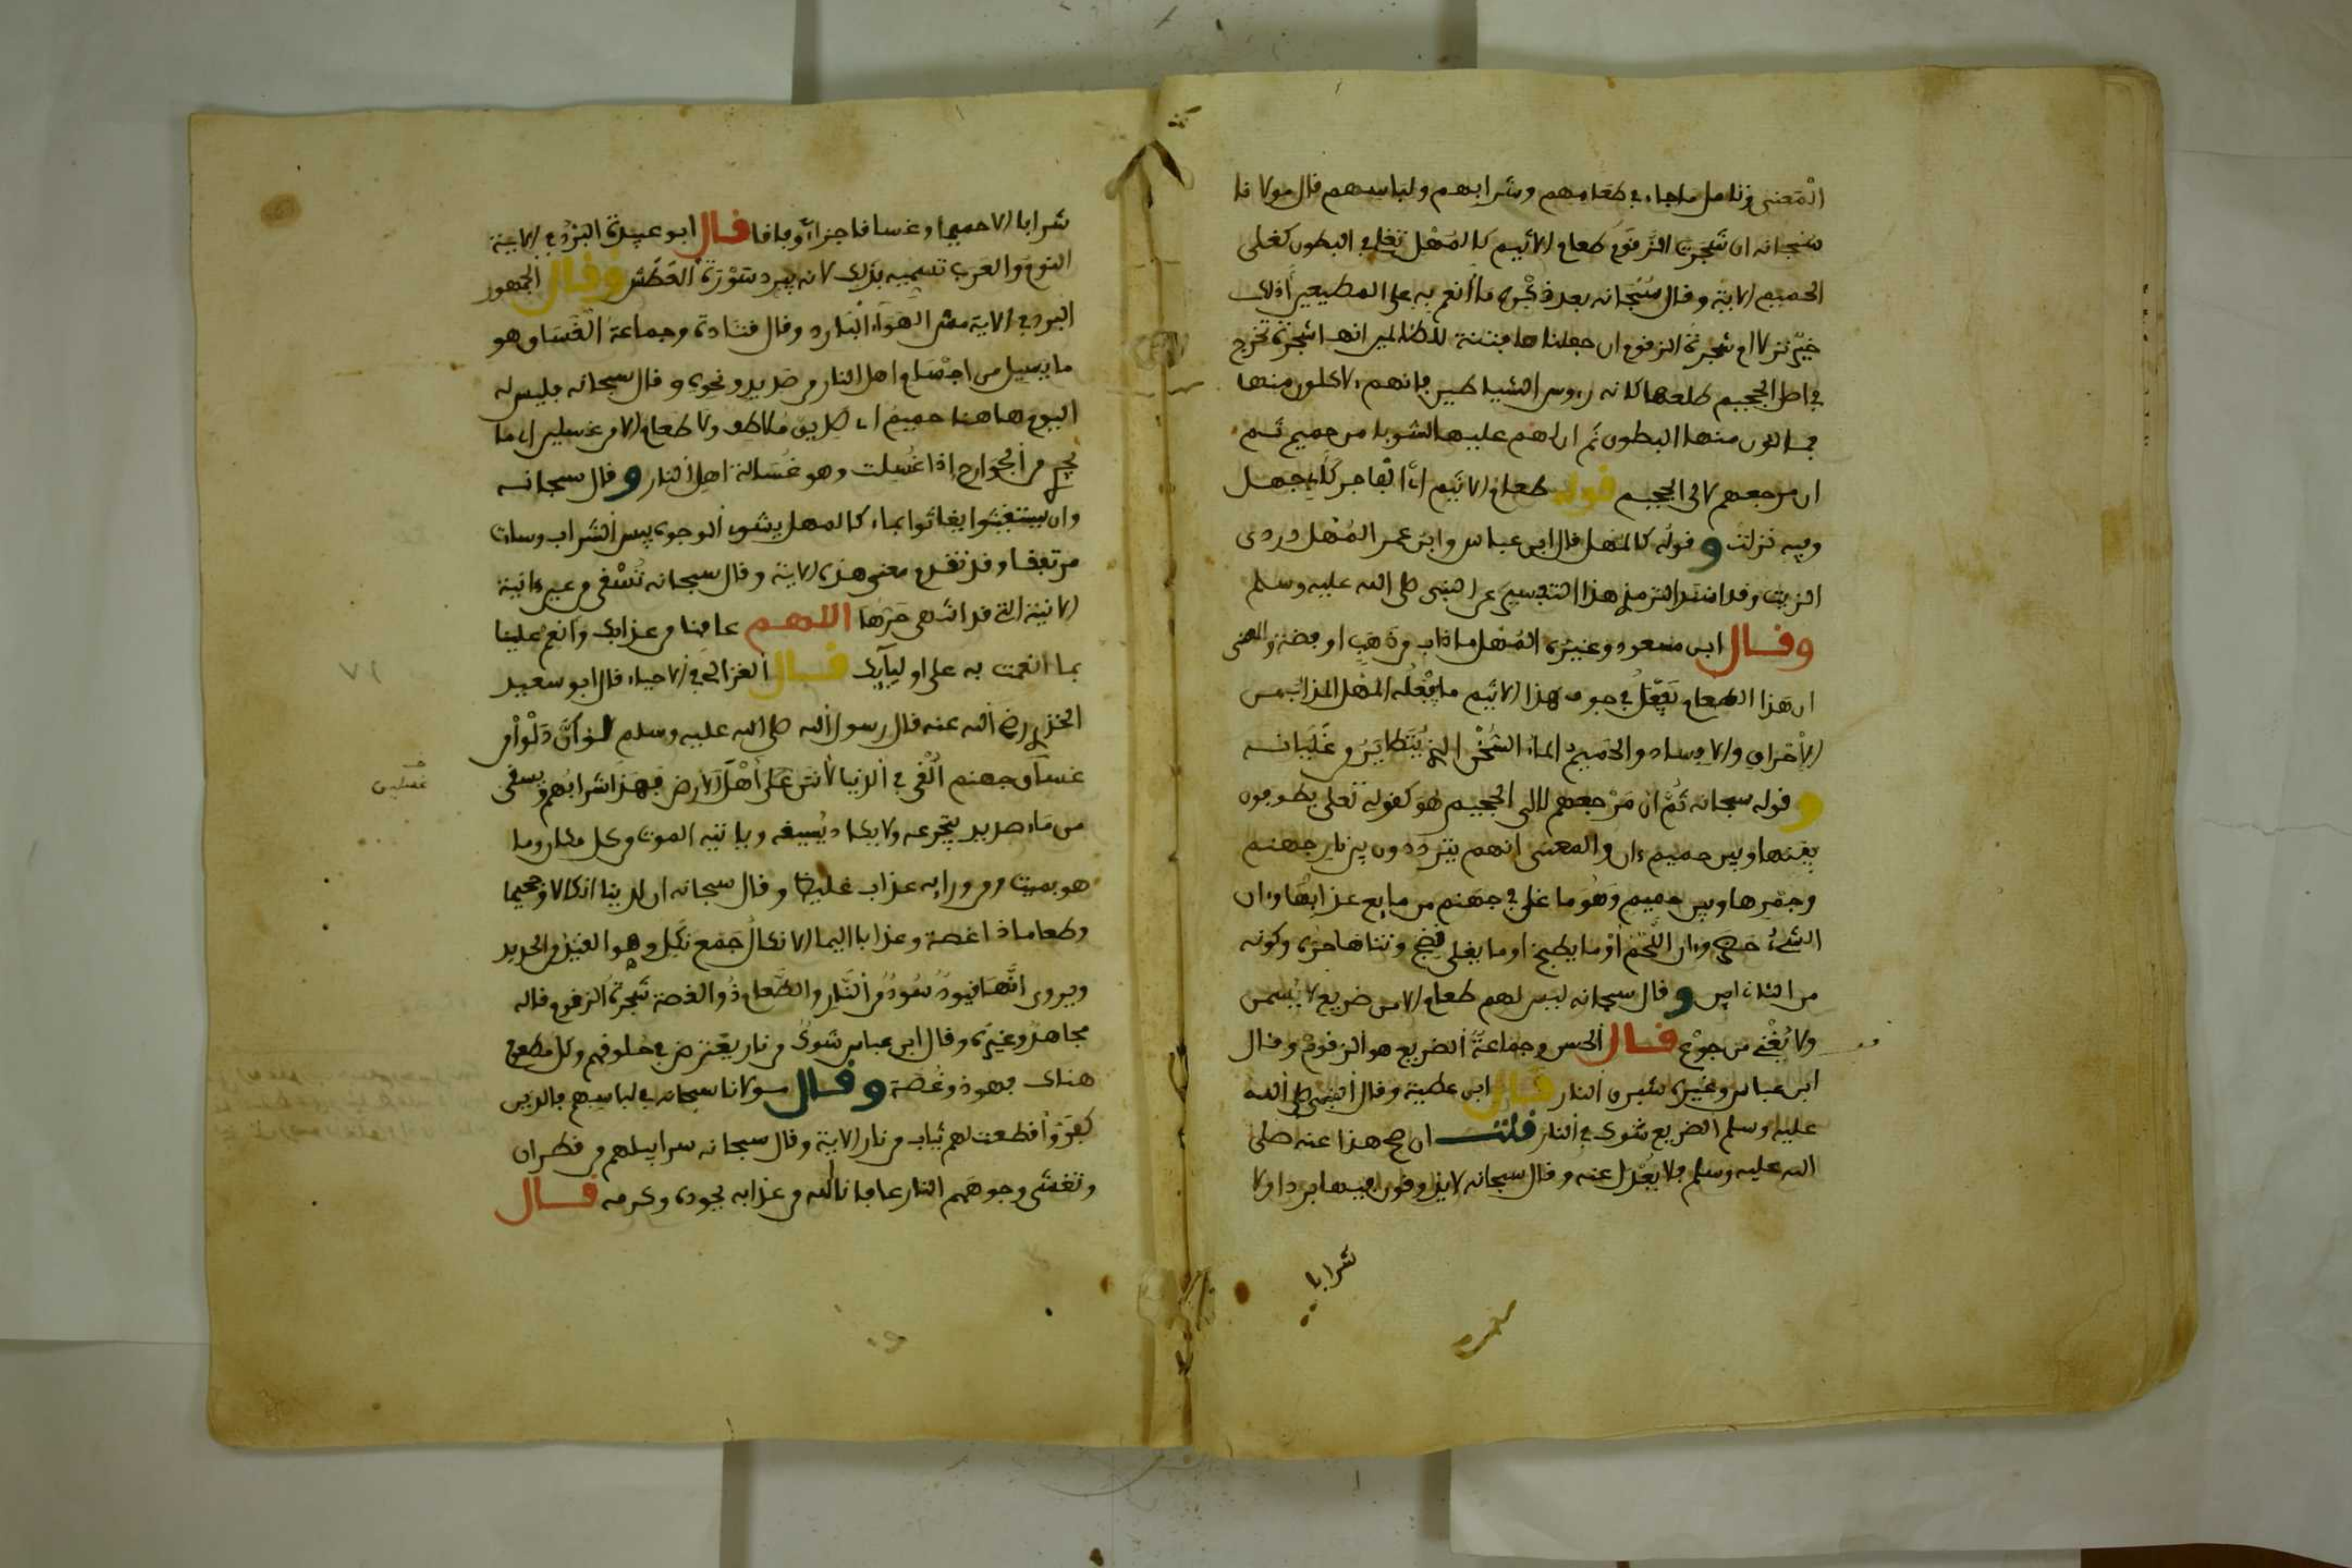 المعنى وتامل ماجاء في طعامهم وشرابهم ولباسهم قال مولانا
سبحانه ان شجرت الزقوم طعام الاثيم كالمهل تغلي في البطون كغلي
الحميم الاية وقال سبحانه بعد ذكره ما أنعم به على المطيعين أذلك
خير نزلا ام شجرة الزقوم انا جعلناها فتنة للظالمين انها شجرة تخرج
في اصل الجحيم طلعها كانه رءوس الشياطين فإنهم ءلاكلون منها
فمالئون منها البطون ثم ان لهم عليها لشوبا من حميم ثم
ان مرجعهم لالى الجحيم قوله طعام الاثيم اي الفاجر كأبي جهل
وفيه نزلت وقوله كالمهل قال ابن عباس وابن عمر المهل دردي
الزيت وقد اسند الترمذي هذا التفسير عن النبي صلى الله عليه وسلم
وقال ابن مسعود وغيره المهل ما ذاب من ذهب او فضة والمعنى
ان هذا الطعام يفعل في جوف هذا الاثيم ما يفعله المهل المذاب من
الإحراق والافساد والحميم الماء السخن الذي يتطاير من غليانه
وقوله سبحانه ثم ان مرجعهم لالى الجحيم هو كقوله تعلى يطوفون
بينها وبين حميم ءان والمعنى انهم يترددون بين نار جهنم
وجمرها وبين حميم وهو ما غلي في جهنم من مايع عذابها وءان
الشيء حضر وءان اللحم أو ما يطبخ او ما يغلى نضج وتناها حره وكونه
من الثلاثي ابين وقال سبحانه ليس لهم طعام الا من ضريع لا يسمن
ولا يغني من جوع قال الحسن وجماعة الضريع هو الزقوم وقال
ابن عباس وغيره شبرق النار قال ابن عطية وقال النبي صلى الله
عليه وسلم الضريع شوك في النار قلت ان صح هذا عنه صلى
الله عليه وسلم فلا يعدل عنه وقال سبحانه لا يذوقون فيها بردا ولا
شرابا
شرابا الا حميما وغساقا جزاء وفاقا قال ابو عبيدة البرد في الاية
النوم والعرب تسميه بذلك لانه يبرد سورة العطش وقال الجمهور
البرد في الاية مس الهواء البارد وقال قتادة وجماعة الغساق هو
ما يسيل من اجسام اهل النار من صديد ونحوه وقال سبحانه فليس له
اليوم هاهنا حميم اي صديق ملاطف ولا طعام الا من غسلين اي ما
يجري من الجوارح إذا غسلت وهو غسالة اهل النار وقال سبحانه
وان يستغيثوا يغاثوا بماء كالمهل يشوي الوجوه بيس الشراب وساءت
مرتفقا وقد تقدم معنى هذه الاية وقال سبحانه تسقى من عين ءانية
الانية التي قد انتهى حرها اللهم عافنا من عذابك وأنعم علينا
بما انعمت به على اوليائك قال الغزالي في الاحياء قال ابو سعيد
الخدري رضي الله عنه قال رسول الله صلى الله عليه وسلم لو أن دلوا من
غساق جهنم ألقي في الدنيا لأنتن على أهل الارض فهذا شرابهم ويسقى
غسلين
من ماء صديد يتجرعه ولا يكاد يسيغه وياتيه الموت من كل مكان وما
هو بميت ومن ورايه عذاب غليظ وقال سبحانه ان لدينا انكالا وجحيما
وطعاما ذا غصة وعذابا اليما الانكال جمع نكل وهو القيد من الحديد
ويروى انها قيود سود من النار والطعام ذو الغصة شجرة الزقوم قاله
مجاهد وغيره وقال ابن عباس شوك من نار يعترض في حلوقهم وكل مطعوم
هناك فهو ذو غصة وقال مولانا سبحانه في لباسهم فالذين
كفروا قطعت لهم ثياب من نار الاية وقال سبحانه سرابيلهم من قطران
وتغشى وجوههم النار عافانا الله من عذابه بجوده وكرمه قال